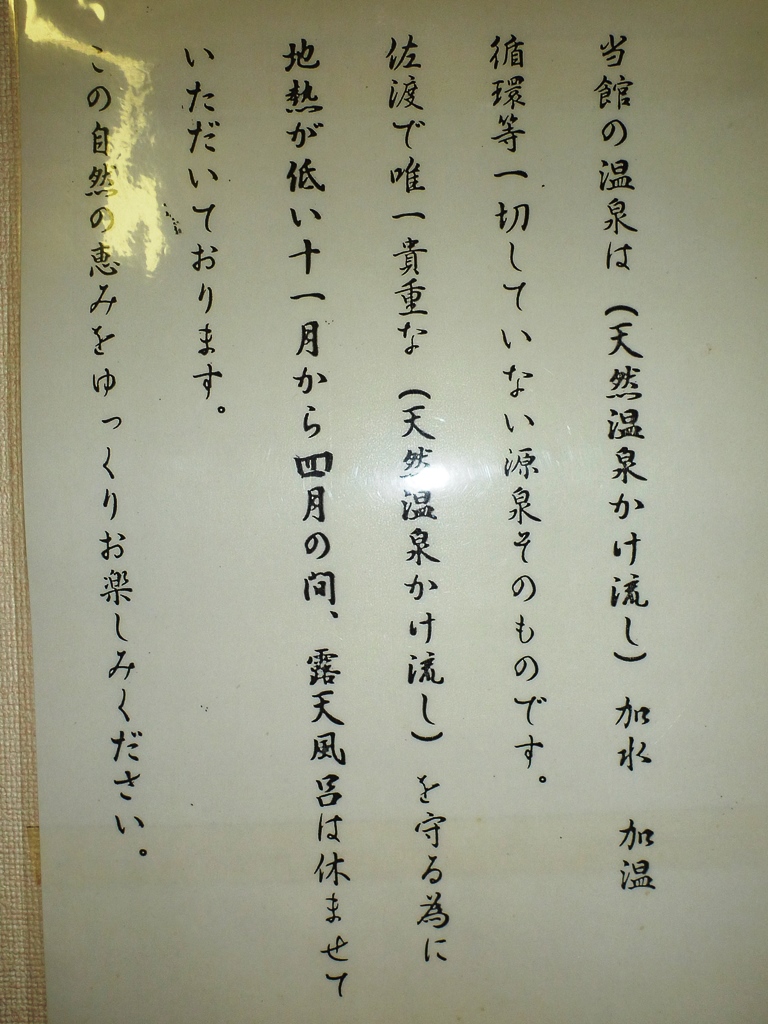 当館の温泉は（天然温泉かけ流し）加水　加温
循環等一切していない源泉そのものです。
佐渡で唯一貴重な（天然温泉かけ流し）を守る為に
地熱が低い十一月から四月の間、露天風呂は休ませて
いただいております。
この自然の恵みをゆっくりお楽しみください。